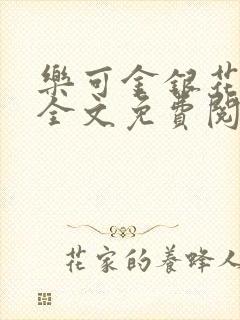 樂可金銀花
全文免費閱
花家的養蜂人